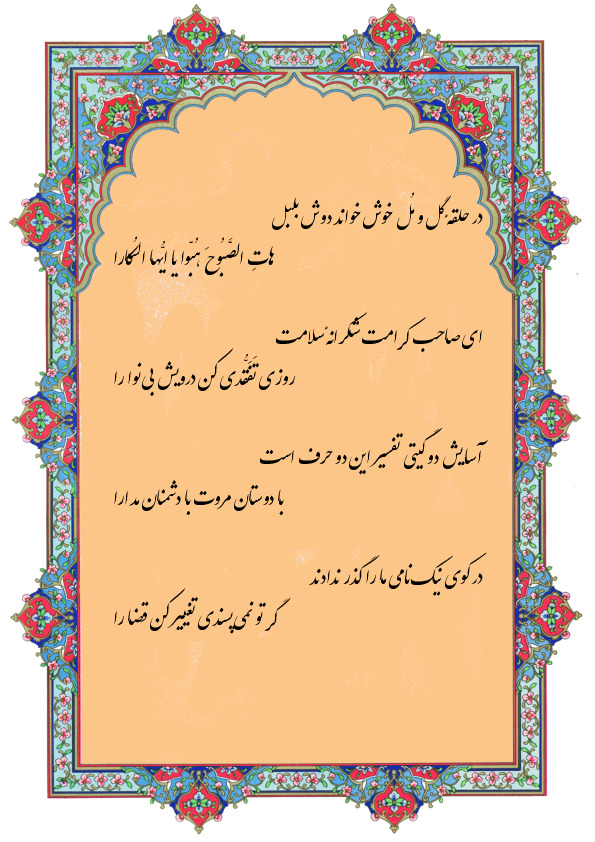 در حلقهٔ گل و مُل خوش خواند دوش بلبل
هاتِ الصَّبُوحَ هُبّوا یا ایُّها السُکارا
ای صاحب کرامت شکرانهٔ سلامت
روزی تَفَقُّدی کن درویش بی‌نوا را
آسایش دو گیتی تفسیر این دو حرف است
با دوستان مروت با دشمنان مدارا
در کوی نیک‌نامی ما را گذر ندادند
گر تو نمی‌پسندی تغییر کن قضا را